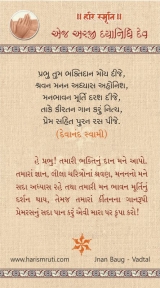 || હરિ સ્મૃતિ ||
એજ અરજી દયાનિધિ દેવ
પ્રભુ તુમ ભક્તિદાન મોય દીજે,
શ્રવન મનન અધ્યાસ અહોનિશ,
મનભાવન મૂર્તિ દરશ દીજે,
તાકે કીરતન ગાન કરું નિત્ય,
પ્રેમ સહિત પુરન રસ પીજે.
(દેવાનંદ સ્વામી)
હે પ્રભુ! તમારી ભક્તિનું દાન મને આપો.
તમારાં જ્ઞાન, લીલા ચરિત્રોનાં શ્રવણ, મનનનો મને
સદા અધ્યાસ રહે તથા તમારી મન ભાવન મૂર્તિનું
દર્શન થાય, તેમજ તમારાં કીર્તનના ગાનરૂપી
પ્રેમરસનું સદા પાન કરું એવી મારા પર કૃપા કરો!
www.harismruti.com Jnan Baug - Vadtal